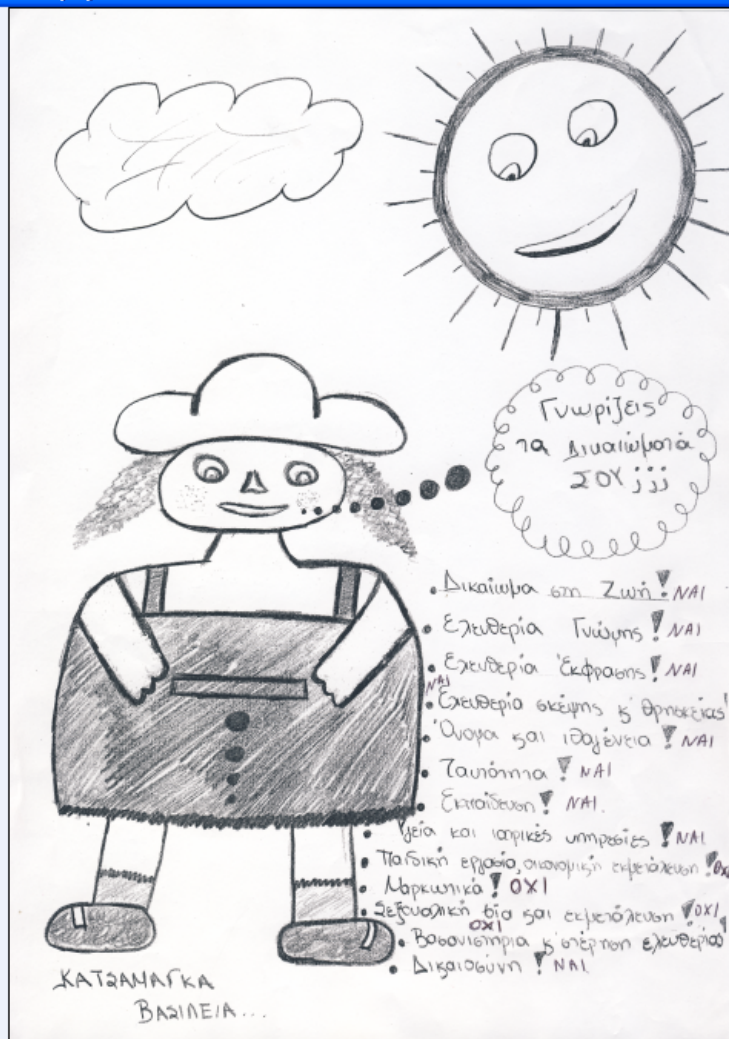 Γνωρίζεις
τα Δικαιώματά
ΣΟΥ ;;;
• Δικαίωμα στη Ζωή! ΝΑΙ
• Ελευθερία Γνώμης! ΝΑΙ
• Ελευθερία Έκφρασης! ΝΑΙ
ΝΑΙ
• Ελευθερία σκέψης ϗ θρησκείας!
• Όνομα και ιθαγένεια! ΝΑΙ
• Ταυτότητα! ΝΑΙ
• Εκπαίδευση! ΝΑΙ.
• Υγεία και ιατρικές υπηρεσίες! ΝΑΙ
• Παιδική εργασία, οικονομική εκμετάλευση! ΟΧΙ
• Ναρκωτικά! ΟΧΙ
• Σεξουαλική βία και εκμετάλευση! ΟΧΙ
ΟΧΙ
• Βασανιστήρια ϗ στέρηση ελευθερίας!
• Δικαιοσύνη! ΝΑΙ.
ΚΑΤΣΑΜΑΓΚΑ
ΒΑΣΙΛΕΙΑ...